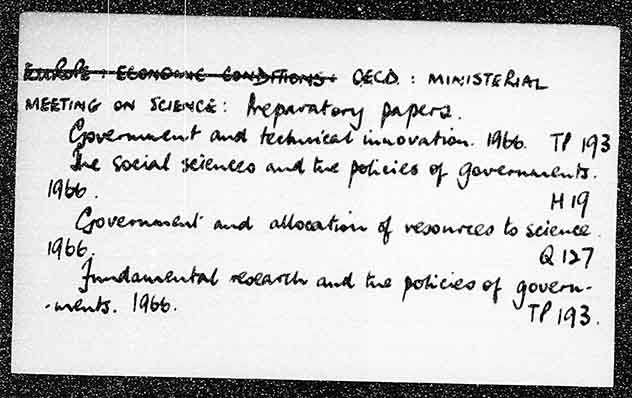 EUROPE : ECONOMIC CONDITIONS: OECD : MINISTERIAL
MEETING ON SCIENCE: Preparatory papers.
Government and technical innovation. 1966. TP 193
The social sciences and the policies of governments.
1966. H 19
Government and allocation of resources to science
1966. Q 127
Fundamental research and the policies of govern-
-ments. 1966. TP 193.